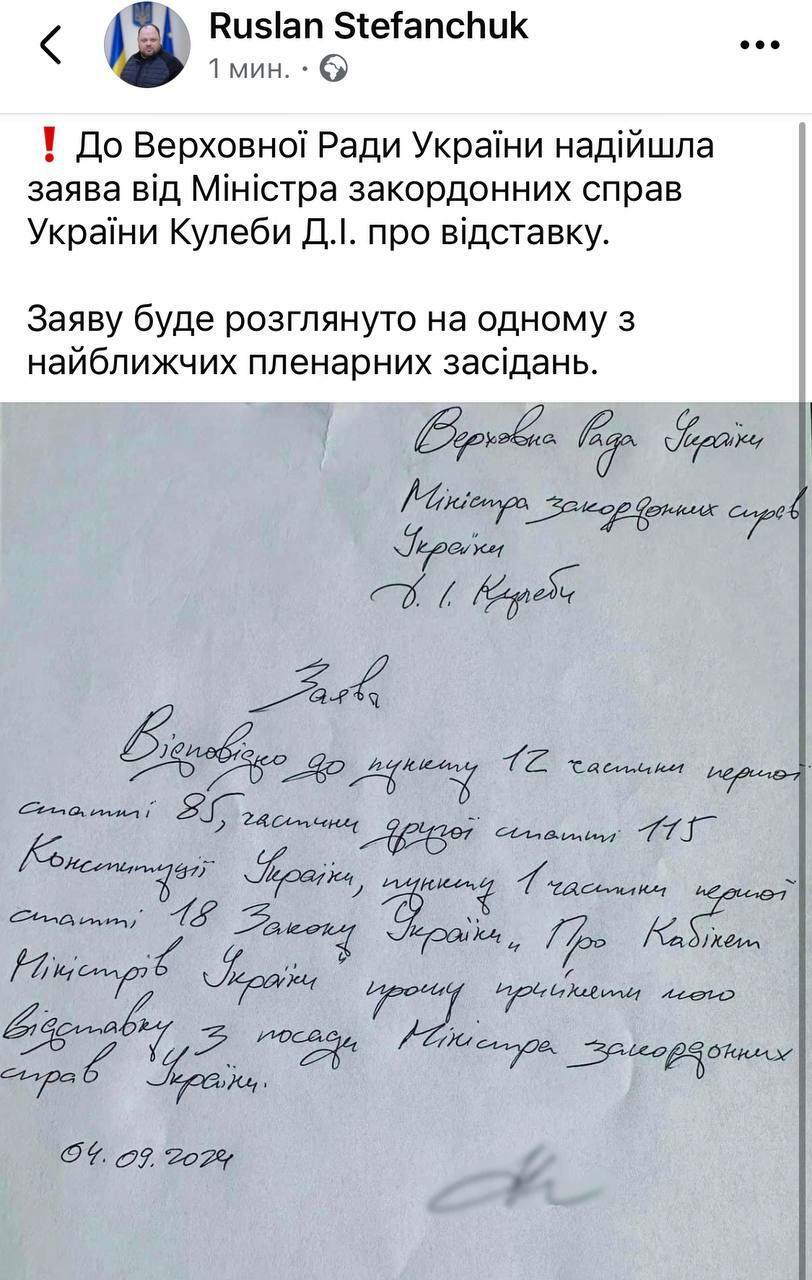 Ruslan Stefanchuk
1 мин. ·
❗ До Верховної Ради України надійшла
заява від Міністра закордонних справ
України Кулеби Д.І. про відставку.
Заяву буде розглянуто на одному з
найближчих пленарних засідань.
Верховна Рада України
Міністра закордонних справ
України
Д. І. Кулеби
Заява
Відповідно до пункту 12 частини першої
статті 85, частини другої статті 115
Конституції України, пункту 1 частини першої
статті 18 Закону України „Про Кабінет
Міністрів України" прошу прийняти мою
відставку з посади Міністра закордонних
справ України.
04.09.2024